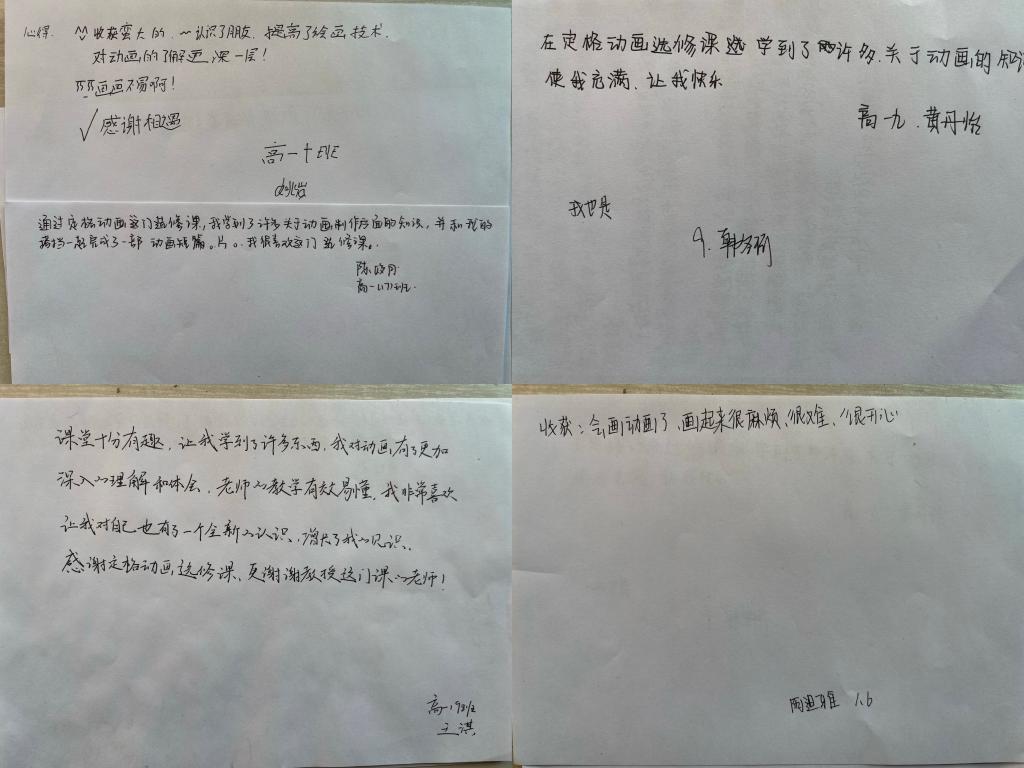 心得. 收获蛮大的. ~认识了朋友, 提高了绘画技术.
对动画的了解更深一层!
画画不易啊!
✓感谢相遇
高一十 EYE
通过定格动画这门选修课,我学到了许多关于动画制作方面的知识,并和我的
搭档一起完成了一部动画短篇。片。我很喜欢这门选修课。
陈
高一(7)班.
在定格动画选修课 学到了许多.关于动画的知识
使我充满.让我快乐
高一九.黄丹怡
我也是
9.韩
课堂十分有趣,让我学到了许多东西,我对动画有了更加
深入的理解和体会.老师的教学有效易懂.我非常喜欢
让我对自己也有了一个全新的认识.增长了我的见识.
感谢定格动画选修课、更谢谢教授这门课的老师!
高一9班
王淇
收获:会画动画了,画起来很麻烦、很难,很开心
1.6